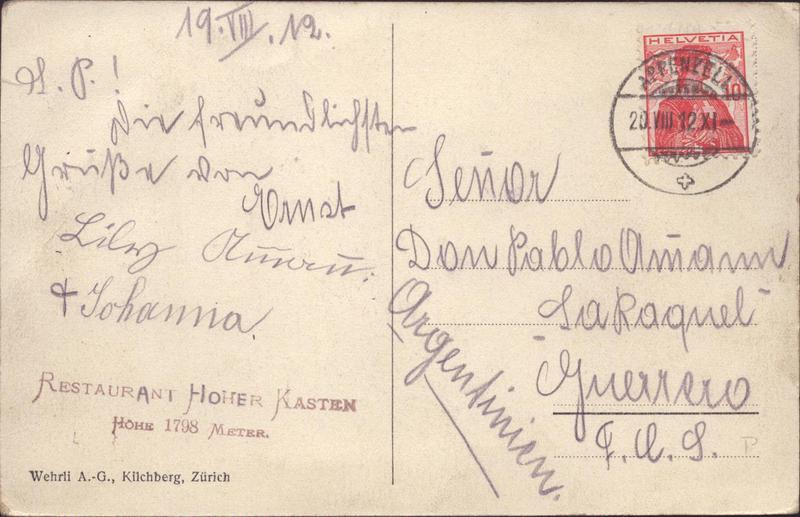 19.VIII.12.
L. P.!
Die freundlichsten
Grüße von
Ernst
Lilly
+ Johanna.
RESTAURANT HOHER KASTEN
HÖHE 1798 METER.
Wehrli A.-G., Kilchberg, Zürich
HELVETIA
10
APPENZELL
20.VIII.12.XI-
Señor
Don Pablo Amann
La Raquel
Guerrero
F. C. S.
Argentinien.